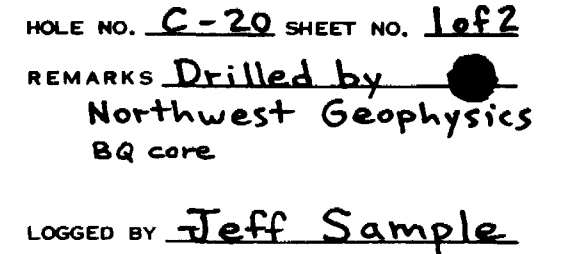 HOLE NO. C-20 SHEET NO. 1 of 2
REMARKS Drilled by
Northwest Geophysics
BQ core
LOGGED BY Jeff Sample